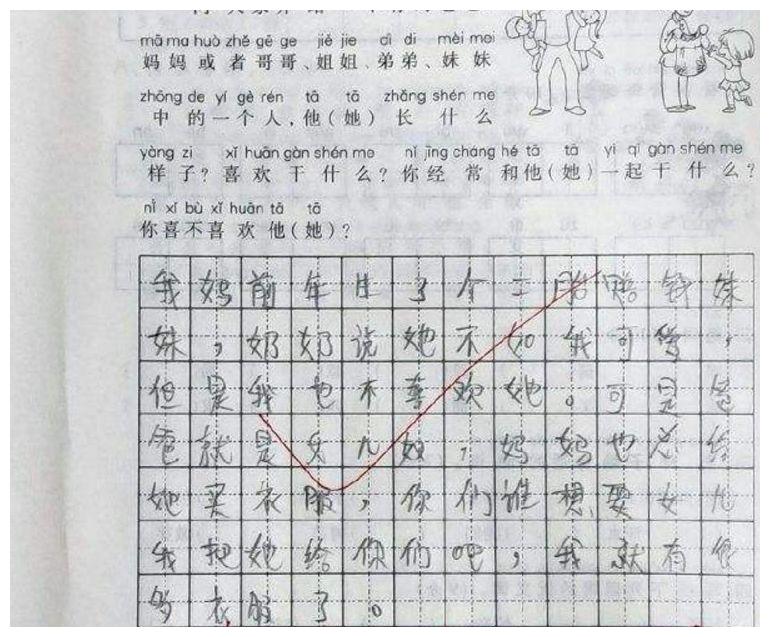 mā ma huò zhě gē ge jiě jie dì di mèi mei
妈妈或者哥哥、姐姐、弟弟、妹妹
zhōng de yí gè rén tā tā zhǎng shén me
中的一个人,他(她)长什么
yàng zi xǐ huān gàn shén me nǐ jīng cháng hé tā tā yì qǐ gàn shén me
样子?喜欢干什么?你经常和他(她)一起干什么?
nǐ xǐ bù xǐ huān tā tā
你喜不喜欢他(她)?
我妈前年生了个二胎赔钱妹
妹,奶奶说她不如我可爱,
但是我也不喜欢她。可是爸
爸就是女儿奴,妈妈也总给
她买衣服,你们谁想要女儿
我把她给你们吧,我就有很
多衣服了。